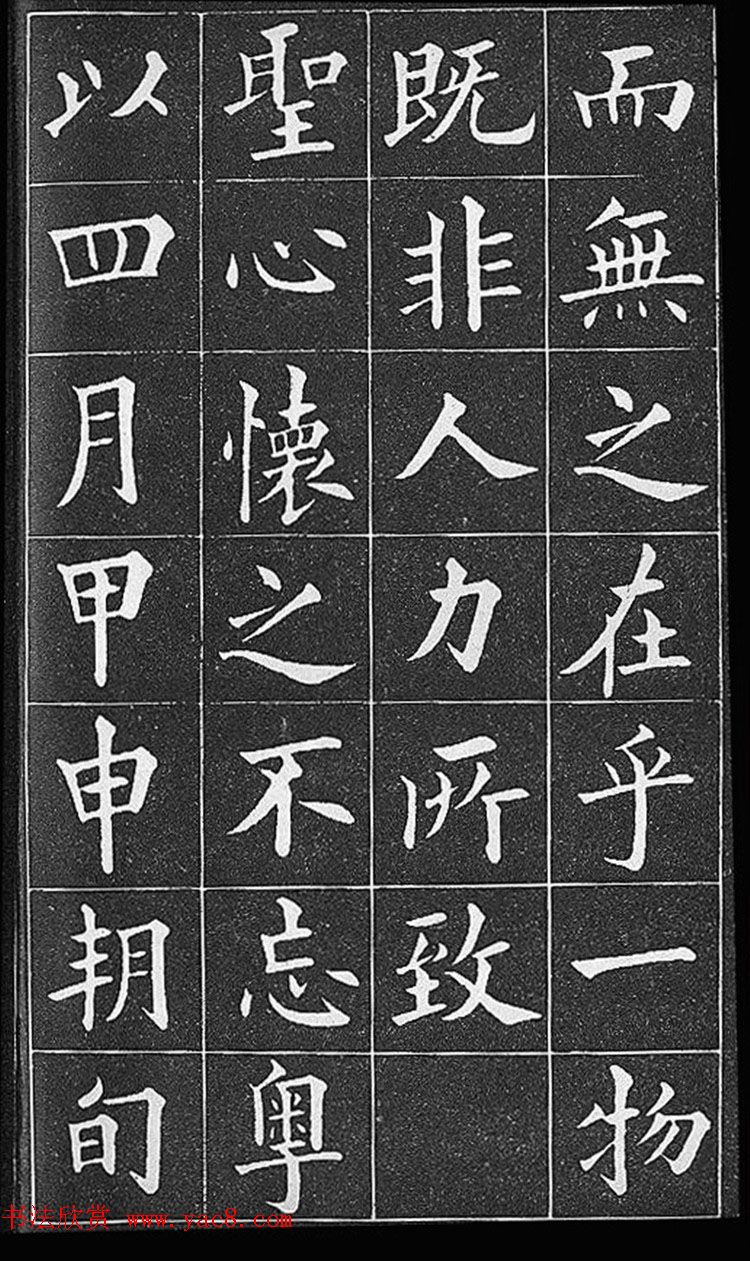 而無之在乎一物
既非人力所致
聖心懷之不忘粵
以四月甲申朔旬
书法欣赏 www.yac8.com